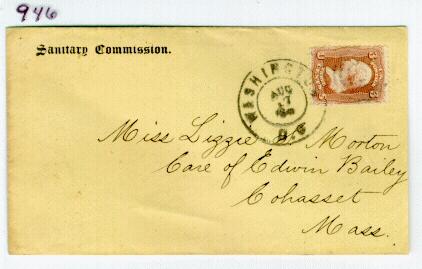 946
Sanitary Commission.
WASHINGTON
AUG
17
D.C
U 3 S
Miss Lizzie L. Morton
Care of Edwin Bailey
Cohasset
Mass.